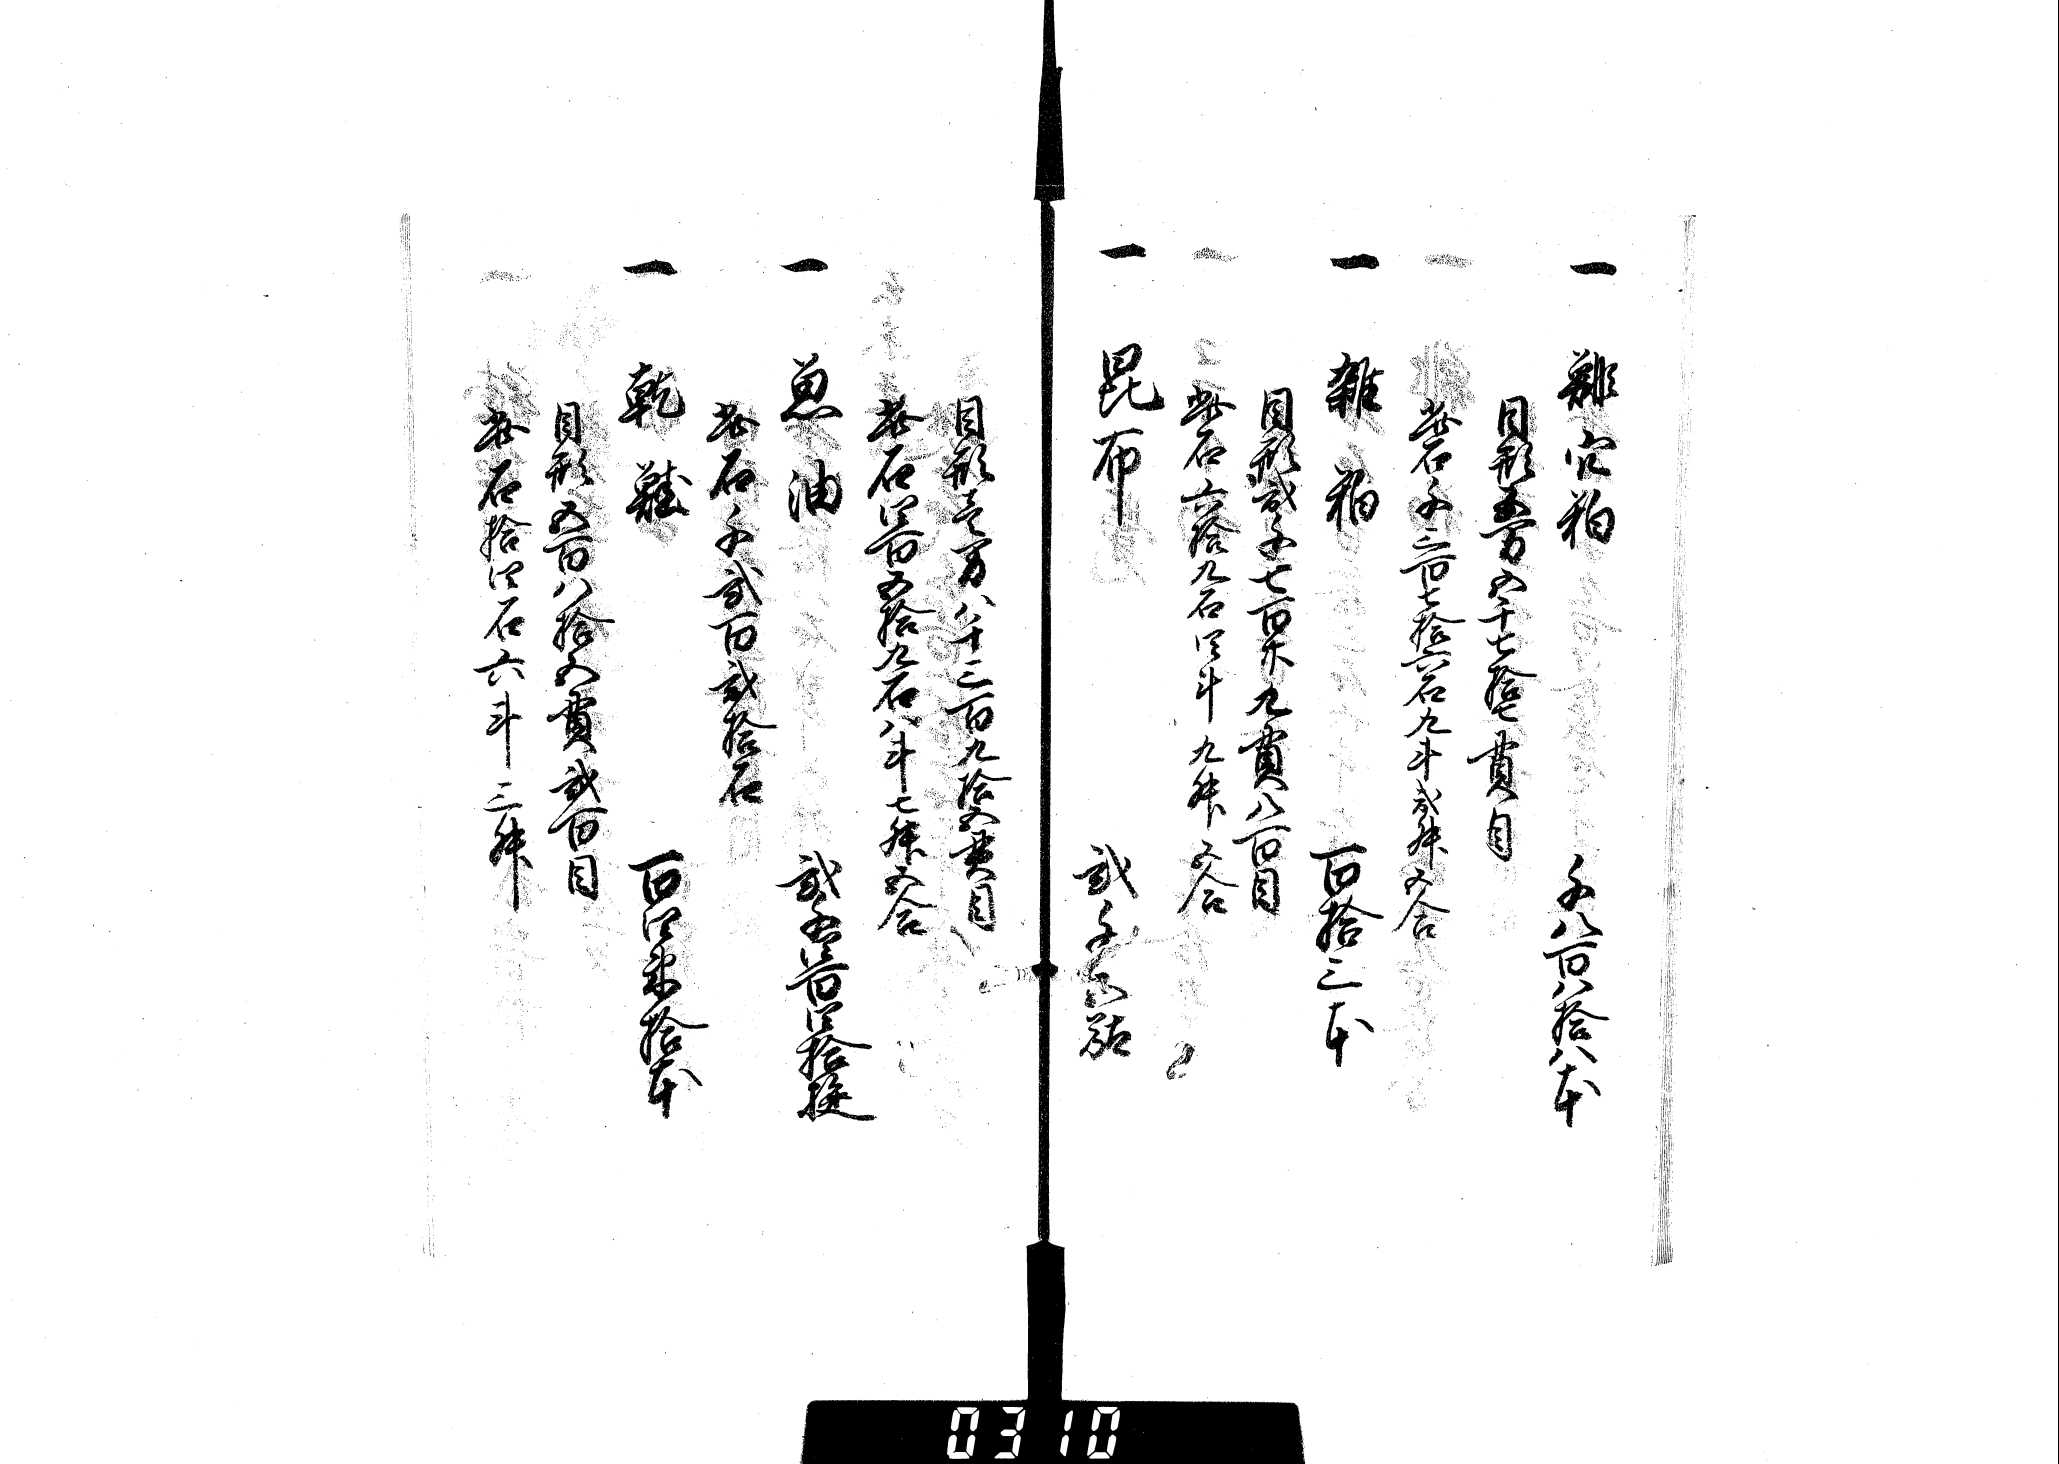 一 鯡穴粕 千八百八拾八本
目形五万五千七拾七貫目
此石千三百七拾六石九斗弐升五合
一 雑粕 百拾三本
目形弐千七百六十九貫八百目
此石六拾九石四斗九升五合
一 昆布 弐千
目形壱万八千三百九拾五貫目
此石四百五拾九石八斗七升五合
一 魚油 弐千四百四拾挺
此石千弐百弐拾石
一 乾 百四 拾本
目形五百八拾五貫弐百目
此石拾四石六斗三升
0310